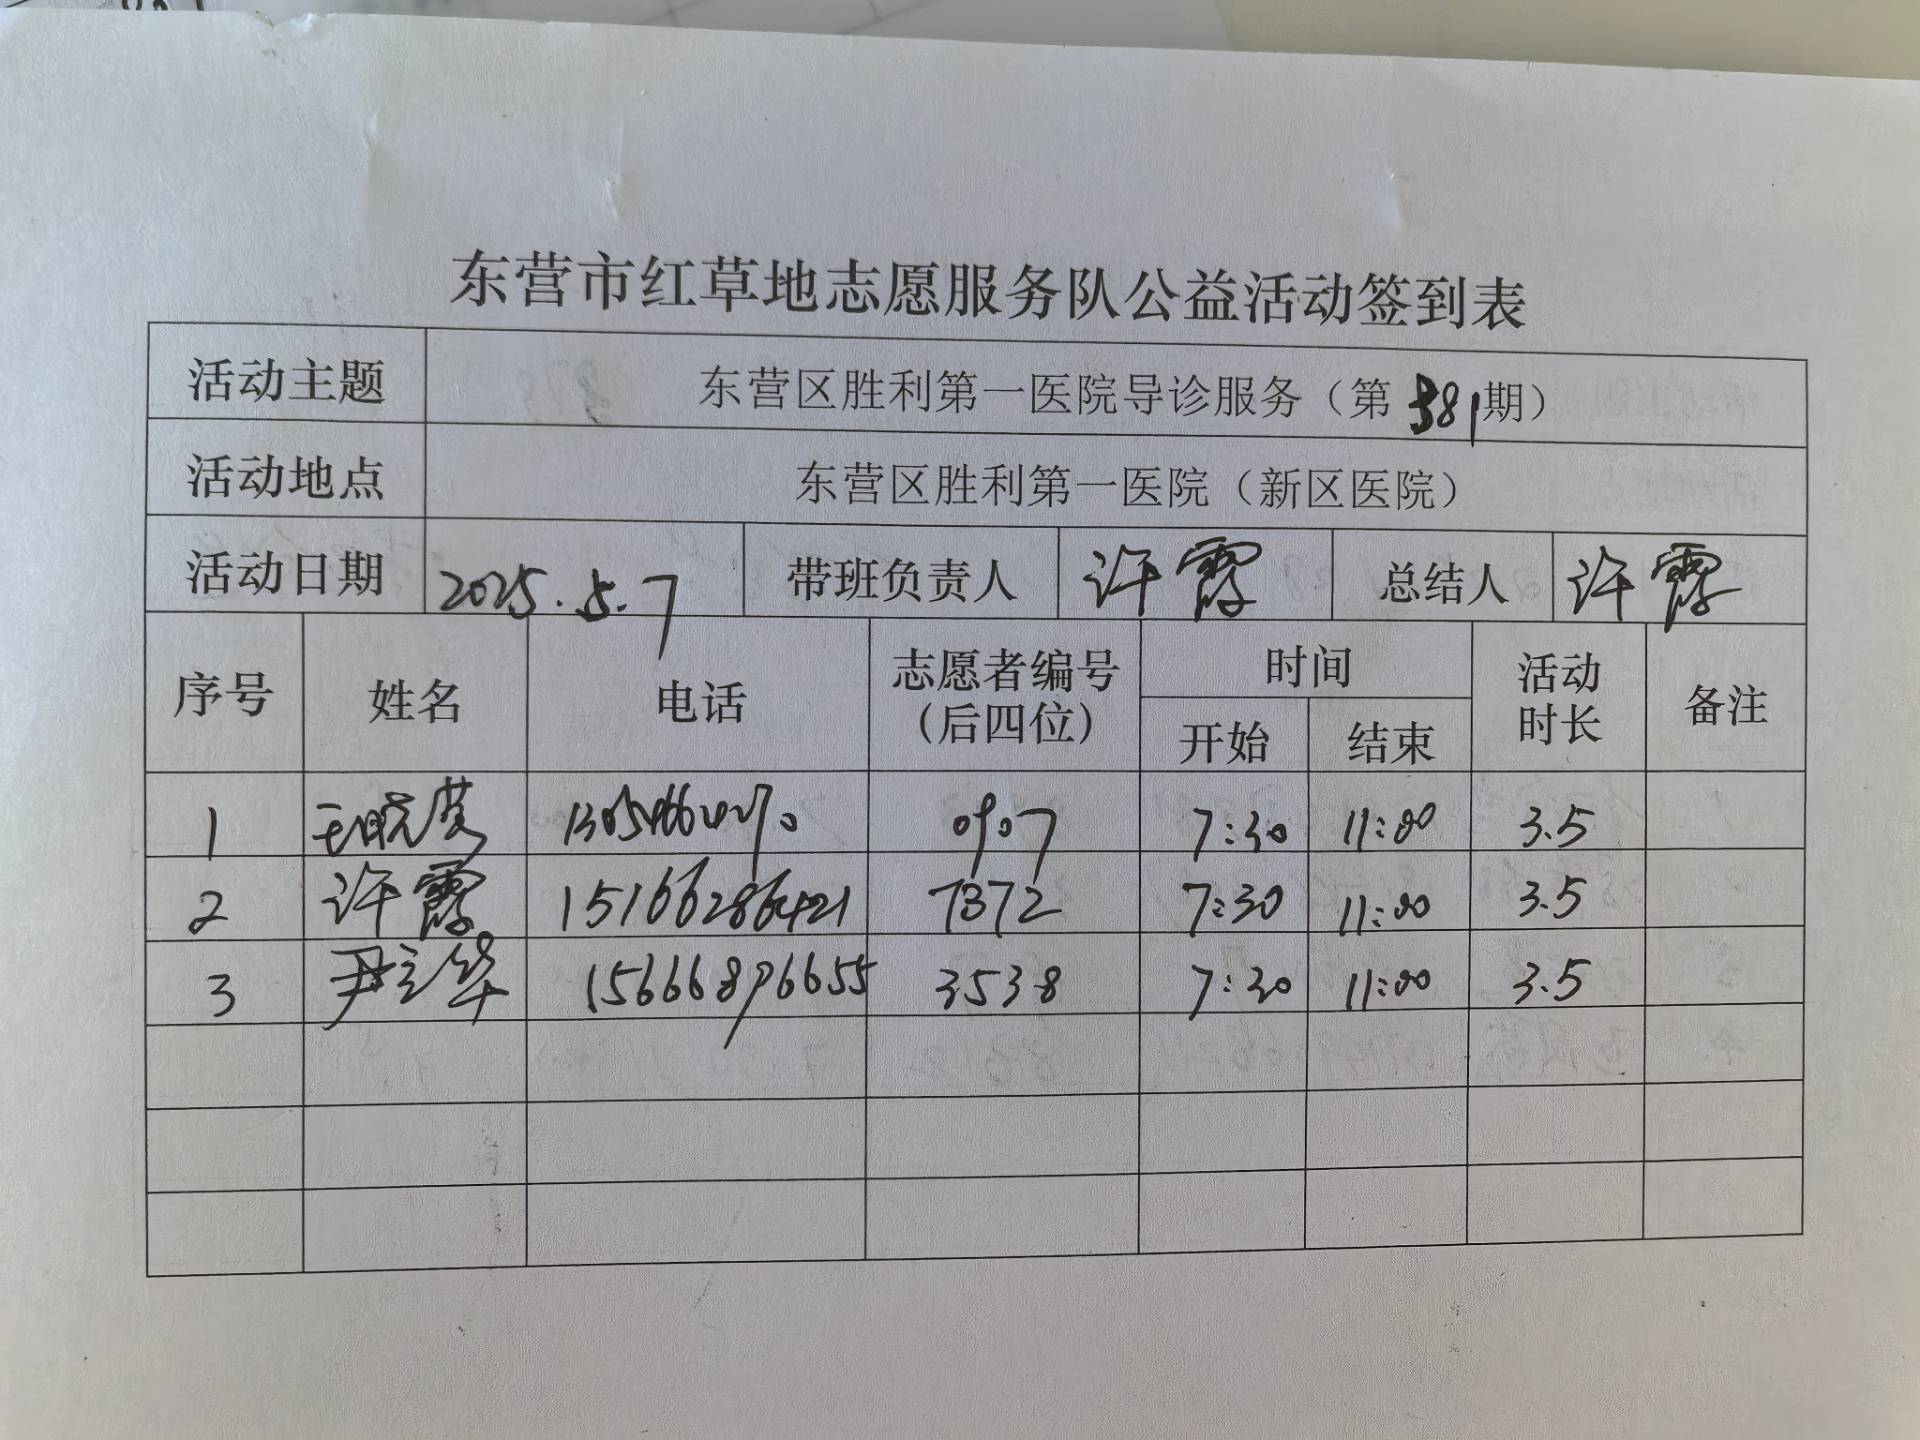 东营市红草地志愿服务队公益活动签到表
活动主题 东营区胜利第一医院导诊服务（第381期）
活动地点 东营区胜利第一医院（新区医院）
活动日期 2025.5.7 带班负责人 许霞 总结人 许霞
序号 姓名 电话 志愿者编号（后四位） 时间 开始 结束 活动时长 备注
1 王晓莹 0907 7:30 11:00 3.5
2 许霞 15166286421 7372 7:30 11:00 3.5
3 尹立华 15666896655 3538 7:30 11:00 3.5